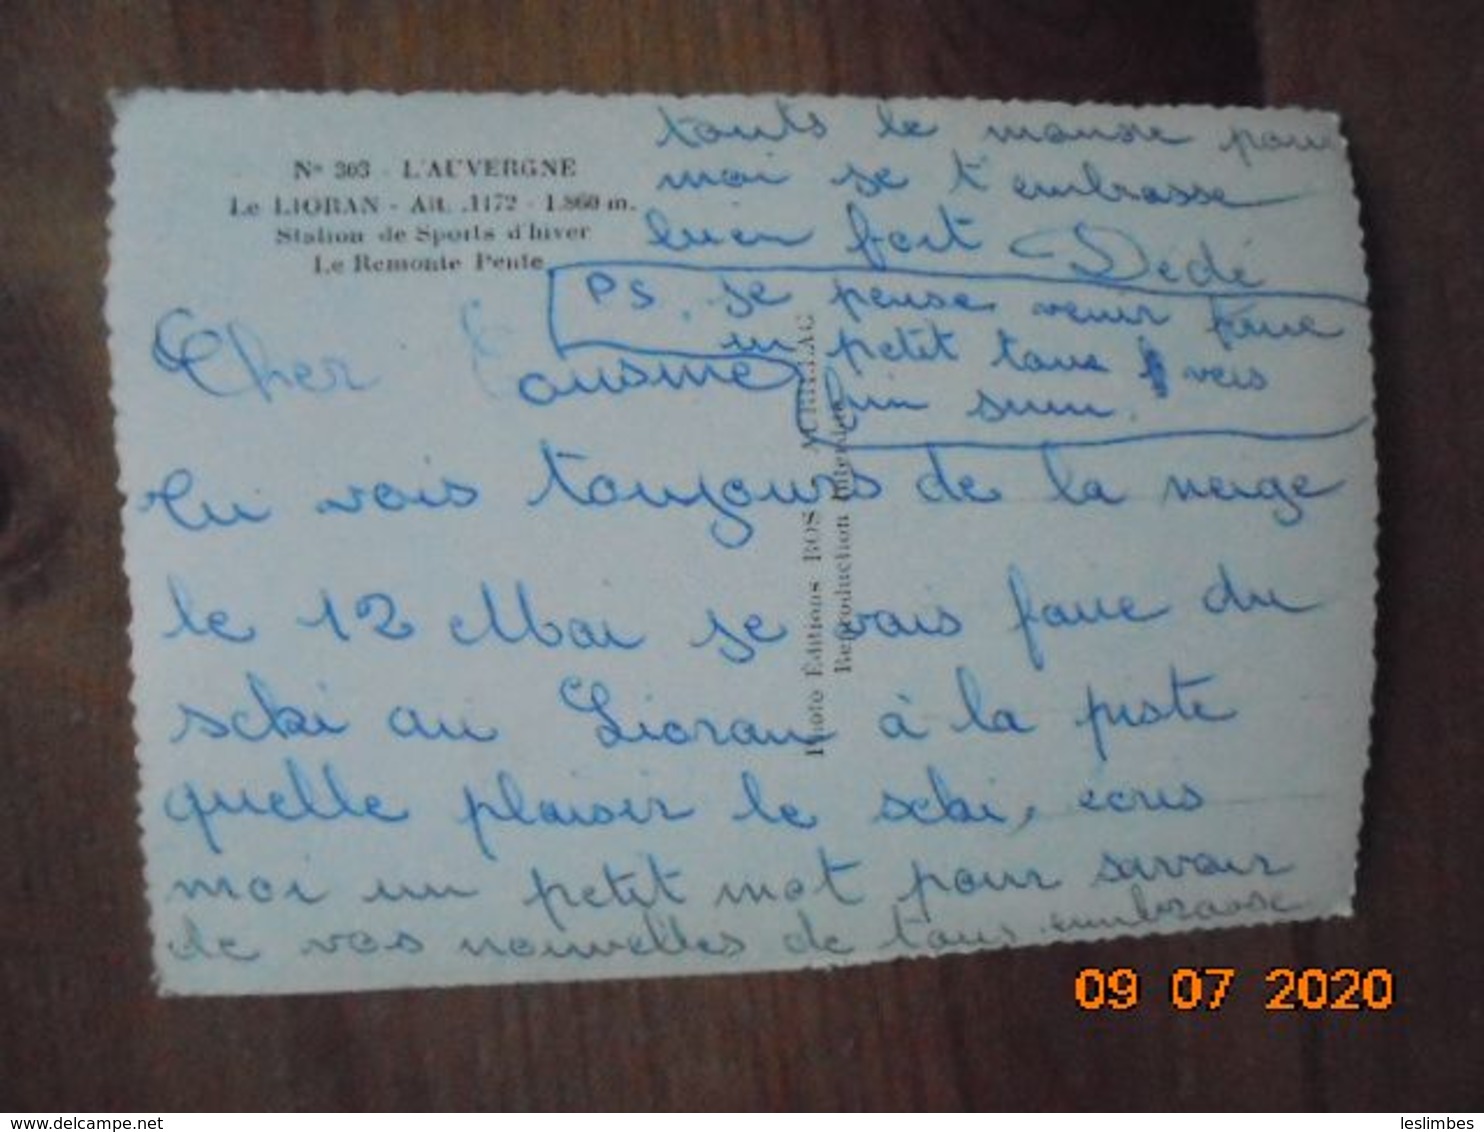 N° 303 - L'AUVERGNE
Le LIORAN - Alt. .1172 - 1.860 m.
Station de Sports d'hiver
Le Remonte Pente
Cher
Tu vois toujours de la neige
le 12 Mai je vais faire du
scki au Lioran à la piste
quelle plaisir le scki, ecris
moi un petit mot pour savoir
de vos nouvelles de tous embrasse
touts le monde pour
moi je t'embrasse
bien fort Dédé
PS. je pense venir faire
un petit tour vers
fin juin.
Photo Éditions BOS AURILLAC
Reproduction Interdite
09 07 2020
leslimbes